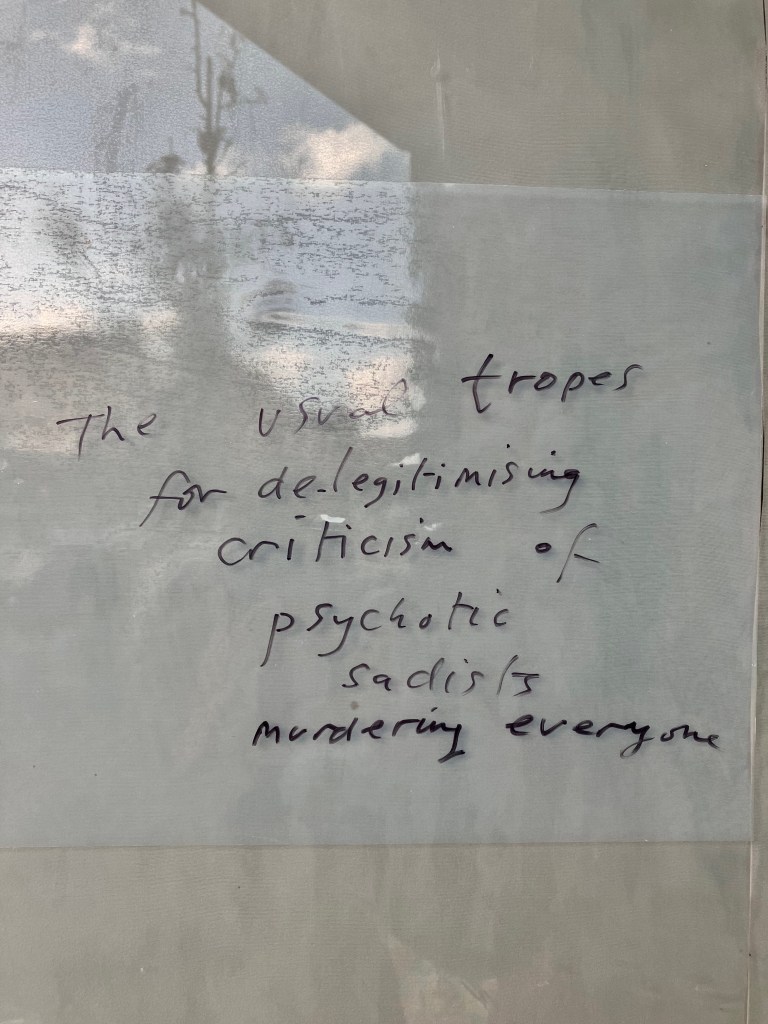 The usual tropes
for de-legitimising
criticism of
psychotic
sadists
murdering everyone